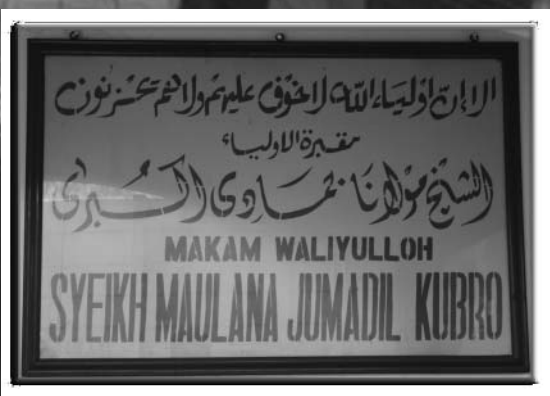 الا ان اولياء الله لا خوف عليهم ولا هم يحزنون
مقبرة الاولياء
الشيخ مولانا جمادى الكبرى
MAKAM WALIYULLOH
SYEIKH MAULANA JUMADIL KUBRO